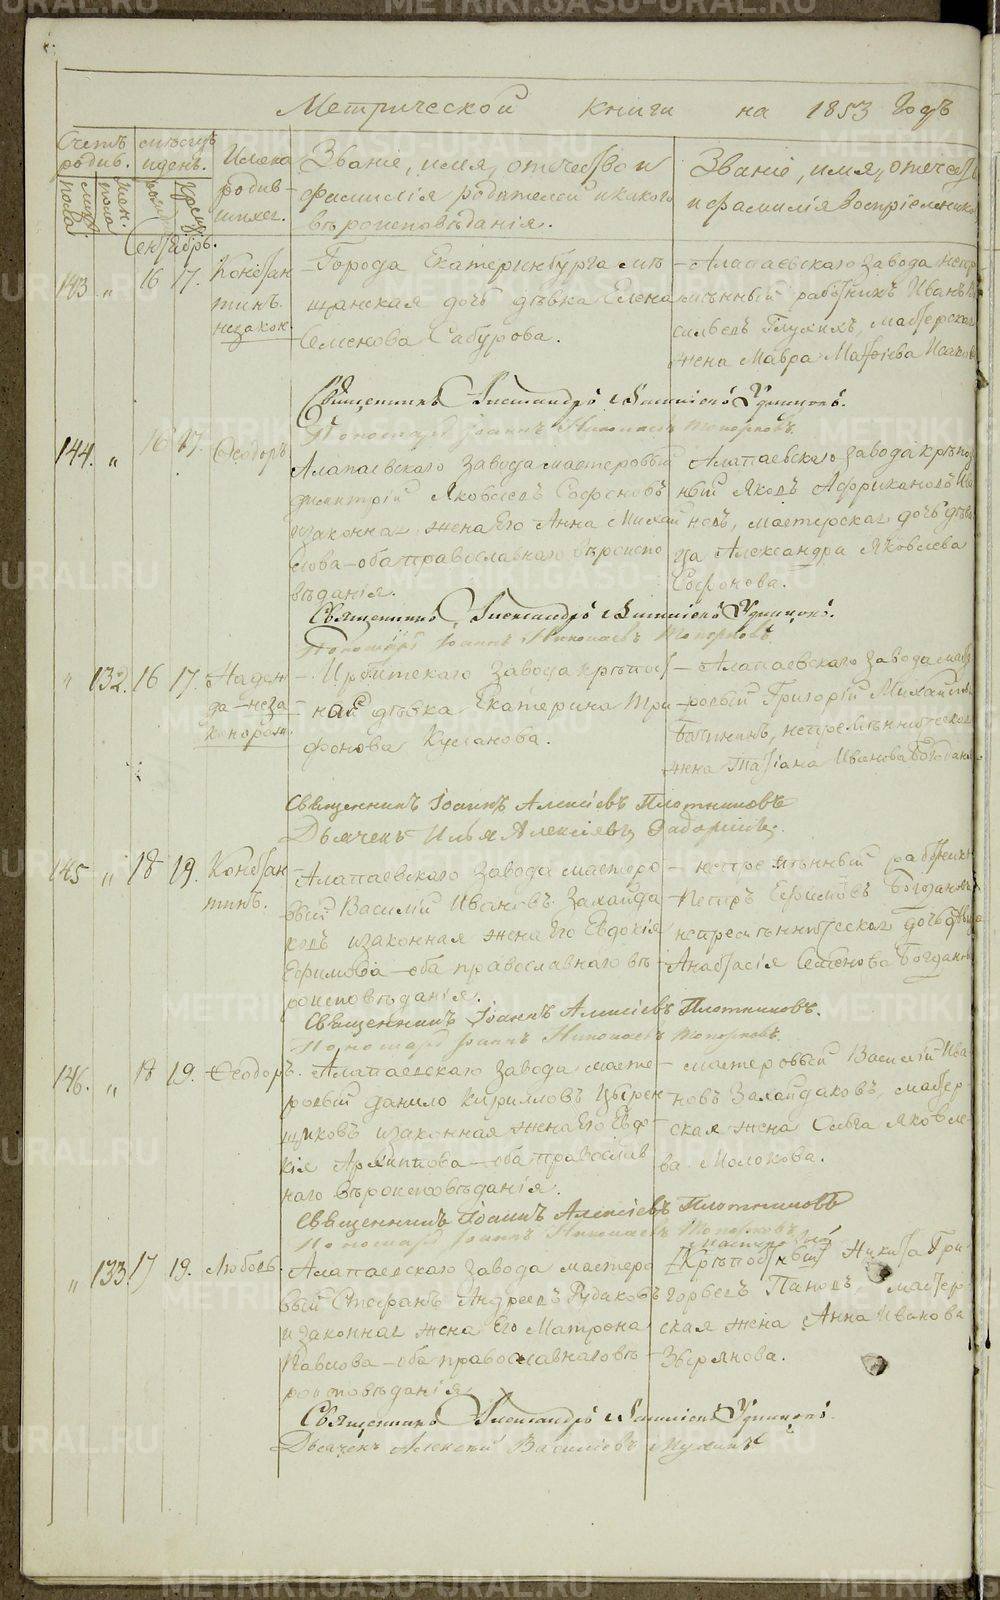 Метрической книги на 1853 Годъ
Счетъ родив.
мужес. пола
жен. пола
месяцъ и день.
рожд.
крещ.
Имена родившихся.
Званіе, имя, отчество и фамилія родителей и какого вѣроисповѣданія.
Званіе, имя, отчест и фамилія Воспріемнико
Сентябрь.
143. „ 16 17. Констан
тинъ.
незакон.
– Города Екатеринбурга мѣ
щанская дочь дѣвка Елена
Семенова Сабурова.
– Алапаевскаго завода непре
мѣнный работникъ Иванъ Ва
сильевъ Глухихъ, мастерская
жена Мавра Матѳіева Исако
Священникъ Александръ Удинцовъ.
Пономарь Іоаннъ Николаевъ Топорковъ.
144. „ 16 17. Ѳеодоръ
Алапаевскаго завода мастеровый
Димитрій Яковлевъ Софоновъ
и законная жена Его Анна Михай
лова – оба православнаго вѣроиспо
вѣданія.
Алапаевскаго завода крѣпос
ный Яковъ Африкановъ Ива
новъ, мастерская дочь дѣви
ца Александра Яковлева
Софонова.
Священникъ Александръ Удинцовъ.
Пономарь Іоаннъ Николаевъ Топорковъ
„ 132. 16 17. Надеж
да – неза
конорож.
– Ирбитскаго завода крѣпост
ная дѣвка Екатерина Три
фонова Кусанова.
– Алапаевскаго завода масте
ровый Григорій Михайловъ
непремѣнническая
жена Татіана Иванова Богданова
Священникъ Іоаннъ Алексіевъ Плотниковъ
Дьячекъ Илья Алексіевъ
145. „ 18 19. Констан
тинъ.
Алапаевскаго завода мастеро
вый Василій Ивановъ Залайда
ковъ и законная жена Его Евдокія
Ефимова – оба православнаго вѣ
роисповѣданія.
– непремѣнный работникъ
Петръ Ефимовъ Богдановъ
непремѣнническая дочь дѣвица
Анастасія Семенова Богданов
Священникъ Іоаннъ Алексіевъ Плотниковъ.
Пономарь Іоаннъ Николаевъ Топорковъ.
146. „ 18 19. Ѳеодоръ.
Алапаевскаго завода масте
ровый Данило Кирилловъ Цырен
щиковъ и законная жена Его Евдо
кія Архиппова – оба православ
наго вѣроисповѣданія.
– мастеровый Василій Ива
новъ Залайдаковъ, мастер
ская жена Ольга Яковле
ва Молокова.
Священникъ Іоаннъ Алексіевъ Плотниковъ
Пономарь Іоаннъ Николаевъ Топорковъ
„ 133. 17 19. Любовь.
Алапаевскаго завода мастеро
вый Стефанъ Андреевъ Рудаковъ
и законная жена Его Матрона
Павлова – оба православнаго вѣ
роисповѣданія.
мастеровый
[Крѣпостный] Никита Гри
горьевъ Пановъ, мастер
ская жена Анна Иванова
Звѣрянова.
Священникъ Александръ Удинцовъ.
Дьячекъ Алексій Василіевъ
METRIKI.GASO-URAL.RU